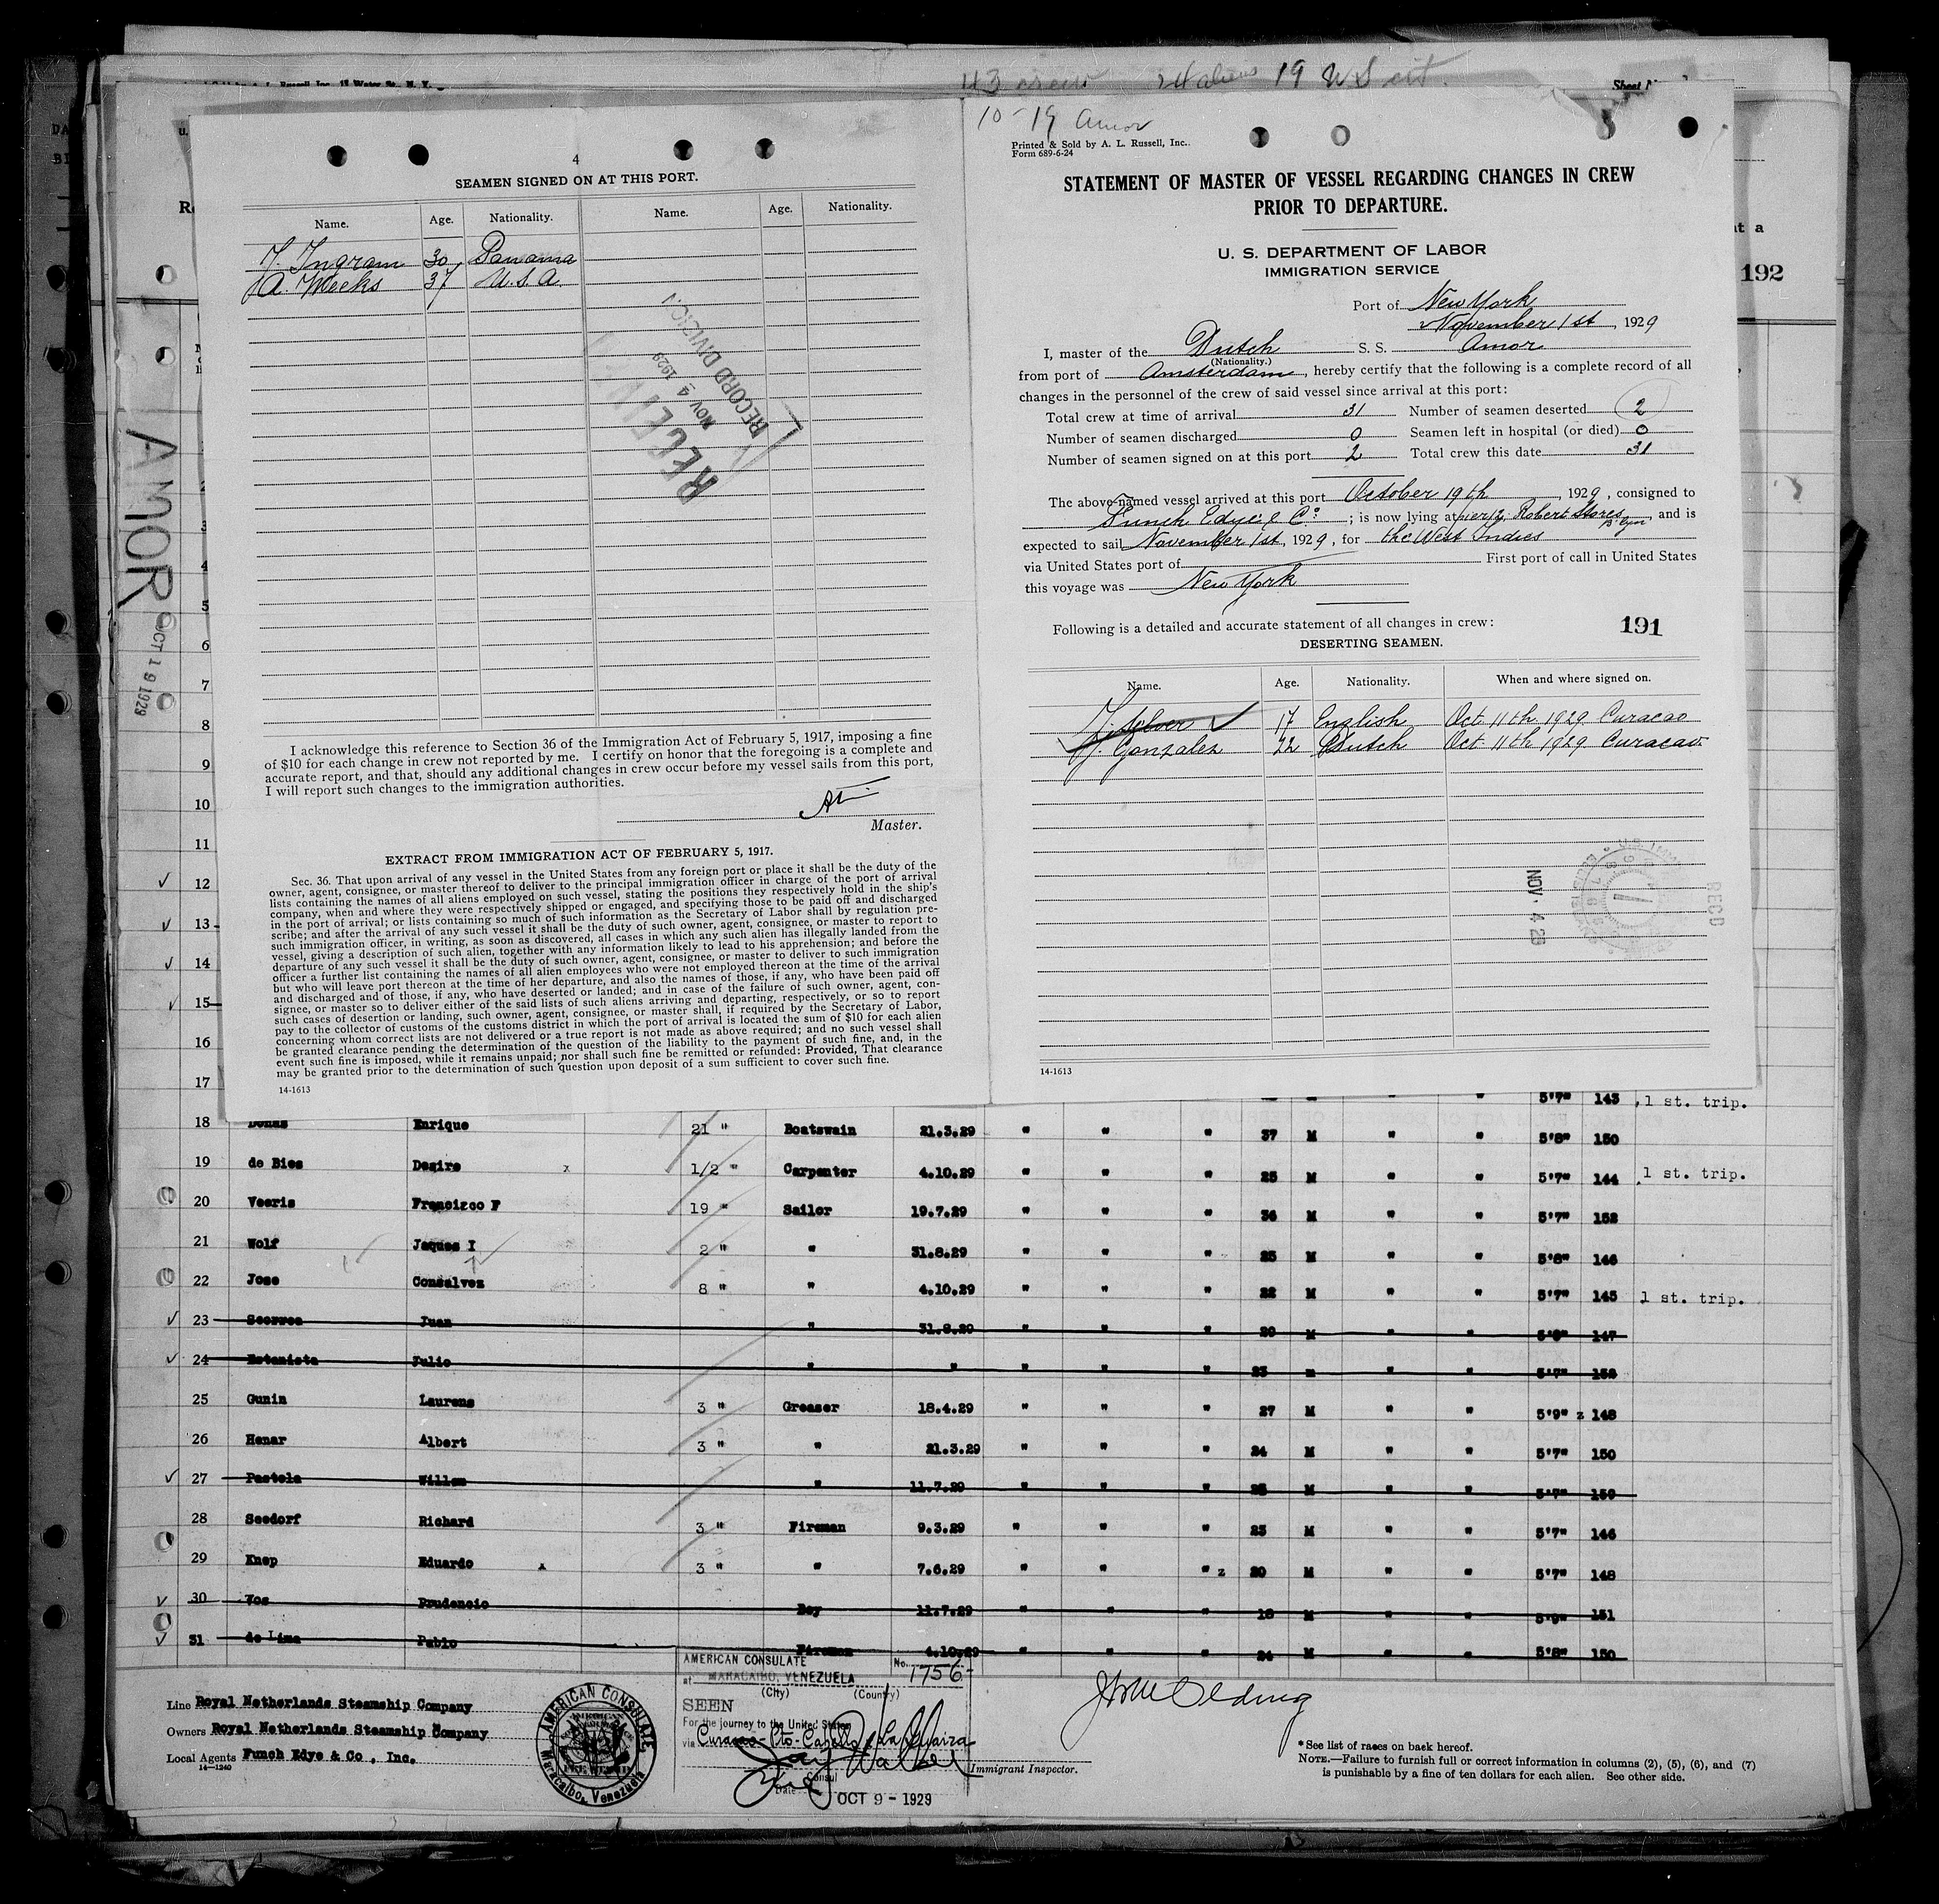 43 crew 19 US cit.
L. Russell Inc. 15 Water St. N. Y.
Sheet
4
SEAMEN SIGNED ON AT THIS PORT.
Name. Age. Nationality. Name. Age. Nationality.
Ingram 30 Panama
A. Weeks 37 U.S.A.
RECORD DIVISION
NOV 4 1929
RECEIVED
I acknowledge this reference to Section 36 of the Immigration Act of February 5, 1917, imposing a fine
of $10 for each change in crew not reported by me. I certify on honor that the foregoing is a complete and
accurate report, and that, should any additional changes in crew occur before my vessel sails from this port,
I will report such changes to the immigration authorities.
Master.
EXTRACT FROM IMMIGRATION ACT OF FEBRUARY 5, 1917.
Sec. 36. That upon arrival of any vessel in the United States from any foreign port or place it shall be the duty of the
owner, agent, consignee, or master thereof to deliver to the principal immigration officer in charge of the port of arrival
lists containing the names of all aliens employed on such vessel, stating the positions they respectively hold in the ship's
company, when and where they were respectively shipped or engaged, and specifying those to be paid off and discharged
in the port of arrival; or lists containing so much of such information as the Secretary of Labor shall by regulation pre-
scribe; and after the arrival of any such vessel it shall be the duty of such owner, agent, consignee, or master to report to
such immigration officer, in writing, as soon as discovered, all cases in which any such alien has illegally landed from the
vessel, giving a description of such alien, together with any information likely to lead to his apprehension; and before the
departure of any such vessel it shall be the duty of such owner, agent, consignee, or master to deliver to such immigration
officer a further list containing the names of all alien employees who were not employed thereon at the time of the arrival
but who will leave port thereon at the time of her departure, and also the names of those, if any, who have been paid off
and discharged and of those, if any, who have deserted or landed; and in case of the failure of such owner, agent, con-
signee, or master so to deliver either of the said lists of such aliens arriving and departing, respectively, or so to report
such cases of desertion or landing, such owner, agent, consignee, or master shall, if required by the Secretary of Labor,
pay to the collector of customs of the customs district in which the port of arrival is located the sum of $10 for each alien
concerning whom correct lists are not delivered or a true report is not made as above required; and no such vessel shall
be granted clearance pending the determination of the question of the liability to the payment of such fine, and, in the
event such fine is imposed, while it remains unpaid; nor shall such fine be remitted or refunded: Provided, That clearance
may be granted prior to the determination of such question upon deposit of a sum sufficient to cover such fine.
14-1613
10-19 Amor
Printed & Sold by A. L. Russell, Inc.
Form 689-6-24
STATEMENT OF MASTER OF VESSEL REGARDING CHANGES IN CREW
PRIOR TO DEPARTURE.
U. S. DEPARTMENT OF LABOR
IMMIGRATION SERVICE
Port of New York
November 1st, 1929
I, master of the Dutch S. S. Amor
(Nationality.)
from port of Amsterdam, hereby certify that the following is a complete record of all
changes in the personnel of the crew of said vessel since arrival at this port:
Total crew at time of arrival 31 Number of seamen deserted 2
Number of seamen discharged 0 Seamen left in hospital (or died) 0
Number of seamen signed on at this port 2 Total crew this date 31
The above-named vessel arrived at this port October 19th, 1929, consigned to
Funch Edye & Co.; is now lying at pier 12 Robert Stores B'lyn, and is
expected to sail November 1st, 1929, for the West Indies
via United States port of First port of call in United States
this voyage was New York
Following is a detailed and accurate statement of all changes in crew: 191
DESERTING SEAMEN.
Name. Age. Nationality. When and where signed on.
Silver 17 English Oct 11th 1929 Curacao
J. Gonzalez 22 Dutch Oct 11th 1929 Curacao
NOV 4 29
RECD
14-1613
192
AMOR
OCT 19 1929
5
6
7
8
9
10
11
12
13
14
15
16
17 5'7" 143 1 st. trip.
18 Enrique 21 " Boatswain 21.3.29 " " " 37 M " " 5'8" 150
19 de Bies Desire x 1/2 " Carpenter 4.10.29 " " " 25 M " " 5'7" 144 1 st. trip.
20 Veeris Francisco F 19 " Sailor 19.7.29 " " " 36 M " " 5'7" 152
21 Wolf Jaques I 2 " " 31.8.29 " " " 25 M " " 5'8" 146
22 Jose Consalvez 8 " " 4.10.29 " " " 22 M " " 5'7" 145 1 st. trip.
23 Juan " 31.8.29 " " " 20 M " " 147
24 Estanista Julio " " " " " 23 m " " 5'7"
25 Gunin Laurens 3 " Greaser 18.4.29 " " " 27 M " " 5'9" z 148
26 Henar Albert 3 " " 21.3.29 " " " 24 M " " 5'7" 150
27 Pastela Willem " 11.7.29 " " " M " " 5'7"
28 Seedorf Richard 3 " Fireman 9.3.29 " " " 23 M " " 5'7" 146
29 Knep Eduardo x 3 " " 7.6.29 " " " z 20 M " " 5'7" 148
30 Vos Prudencio Boy 11.7.29 " " " 18 M " " 5'9" 151
31 de Lima Pablo Fireman 4.10.29 " " " 24 M " " 5'8" 150
Line Royal Netherlands Steamship Company
Owners Royal Netherlands Steamship Company
Local Agents Funch Edye & Co, Inc.
14-1240
AMERICAN CONSULATE
Maracaibo, Venezuela
AMERICAN CONSULATE No. 1756
at MARACAIBO, VENEZUELA
(City) (Country)
SEEN
For the journey to the United States
via Curacao-Pto-Cabello & La Guaira
Consul
Date OCT 9 - 1929
Immigrant Inspector.
* See list of races on back hereof.
NOTE.—Failure to furnish full or correct information in columns (2), (5), (6), and (7)
is punishable by a fine of ten dollars for each alien. See other side.